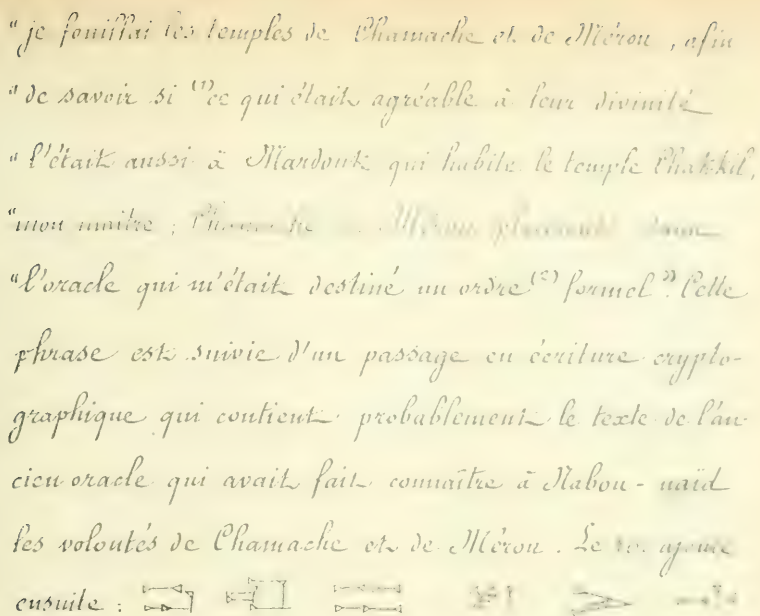 "je fouillai les temples de Chamache et de Mérou, afin
"de savoir si (1) ce qui était agréable à leur divinité
"l'était aussi à Mardouk qui habite le temple Chakkil,
"mon maître ; Chamache Mérou placèrent dans
"l'oracle qui m'était destiné un ordre (2) formel". Cette
phrase est suivie d'un passage en écriture crypto-
graphique qui contient probablement le texte de l'an-
cien oracle qui avait fait connaître à Nabou-naïd
les volontés de Chamache et de Mérou. Le roi ajoute
ensuite :